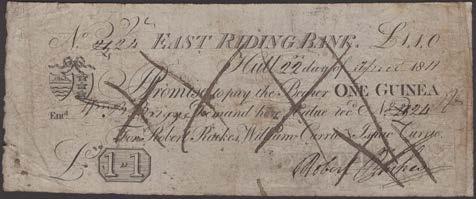 No 2424 EAST RIDING BANK. £1.1.0
Hull 22 day of April 18
Promise to pay the Bearer ONE GUINEA
on Demand here Value recd No 2424
Entd
For Robert Raikes, William Currie & Isaac Currie.
£ 1"1"
Robert Raikes